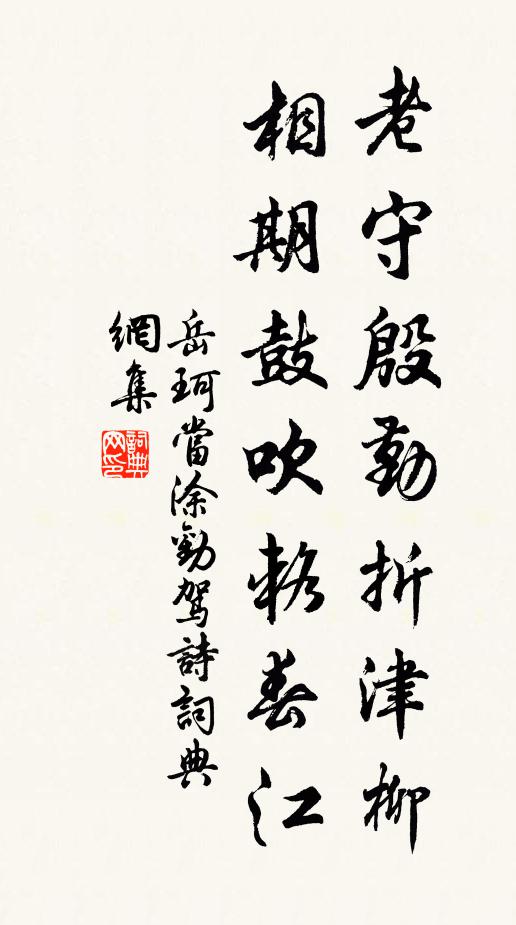 老守殷勤折津柳
相期鼓吹敕春江
岳珂當涂勸駕詩詞典
網集
詞典网印